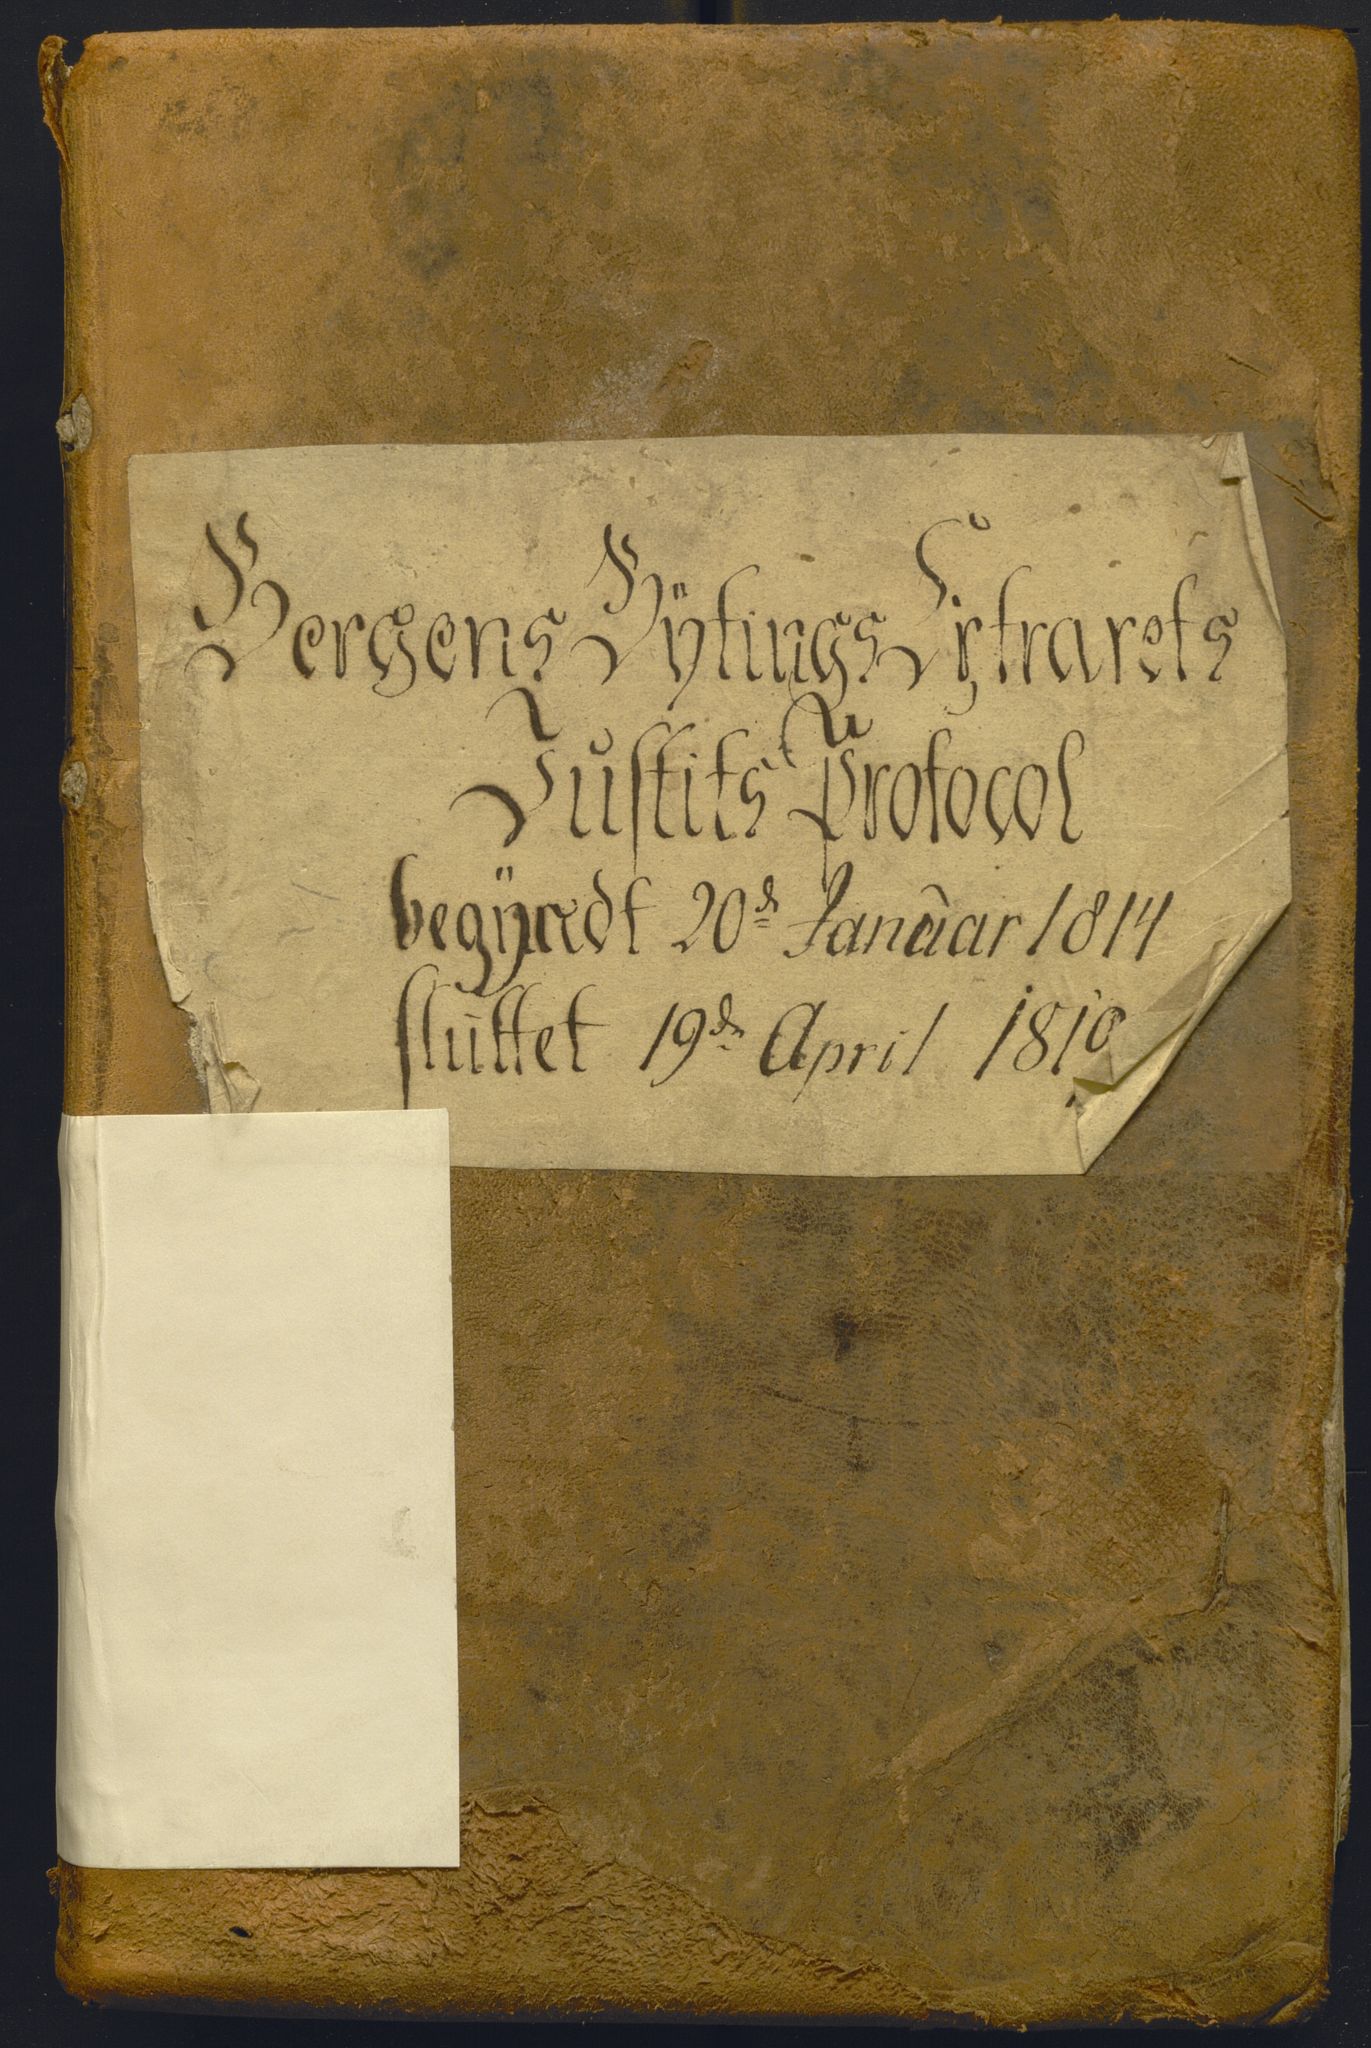 Bergens Bÿtings Extrarets
Justits Protocol
begÿndt 20de Januar 1814
sluttet 19de April